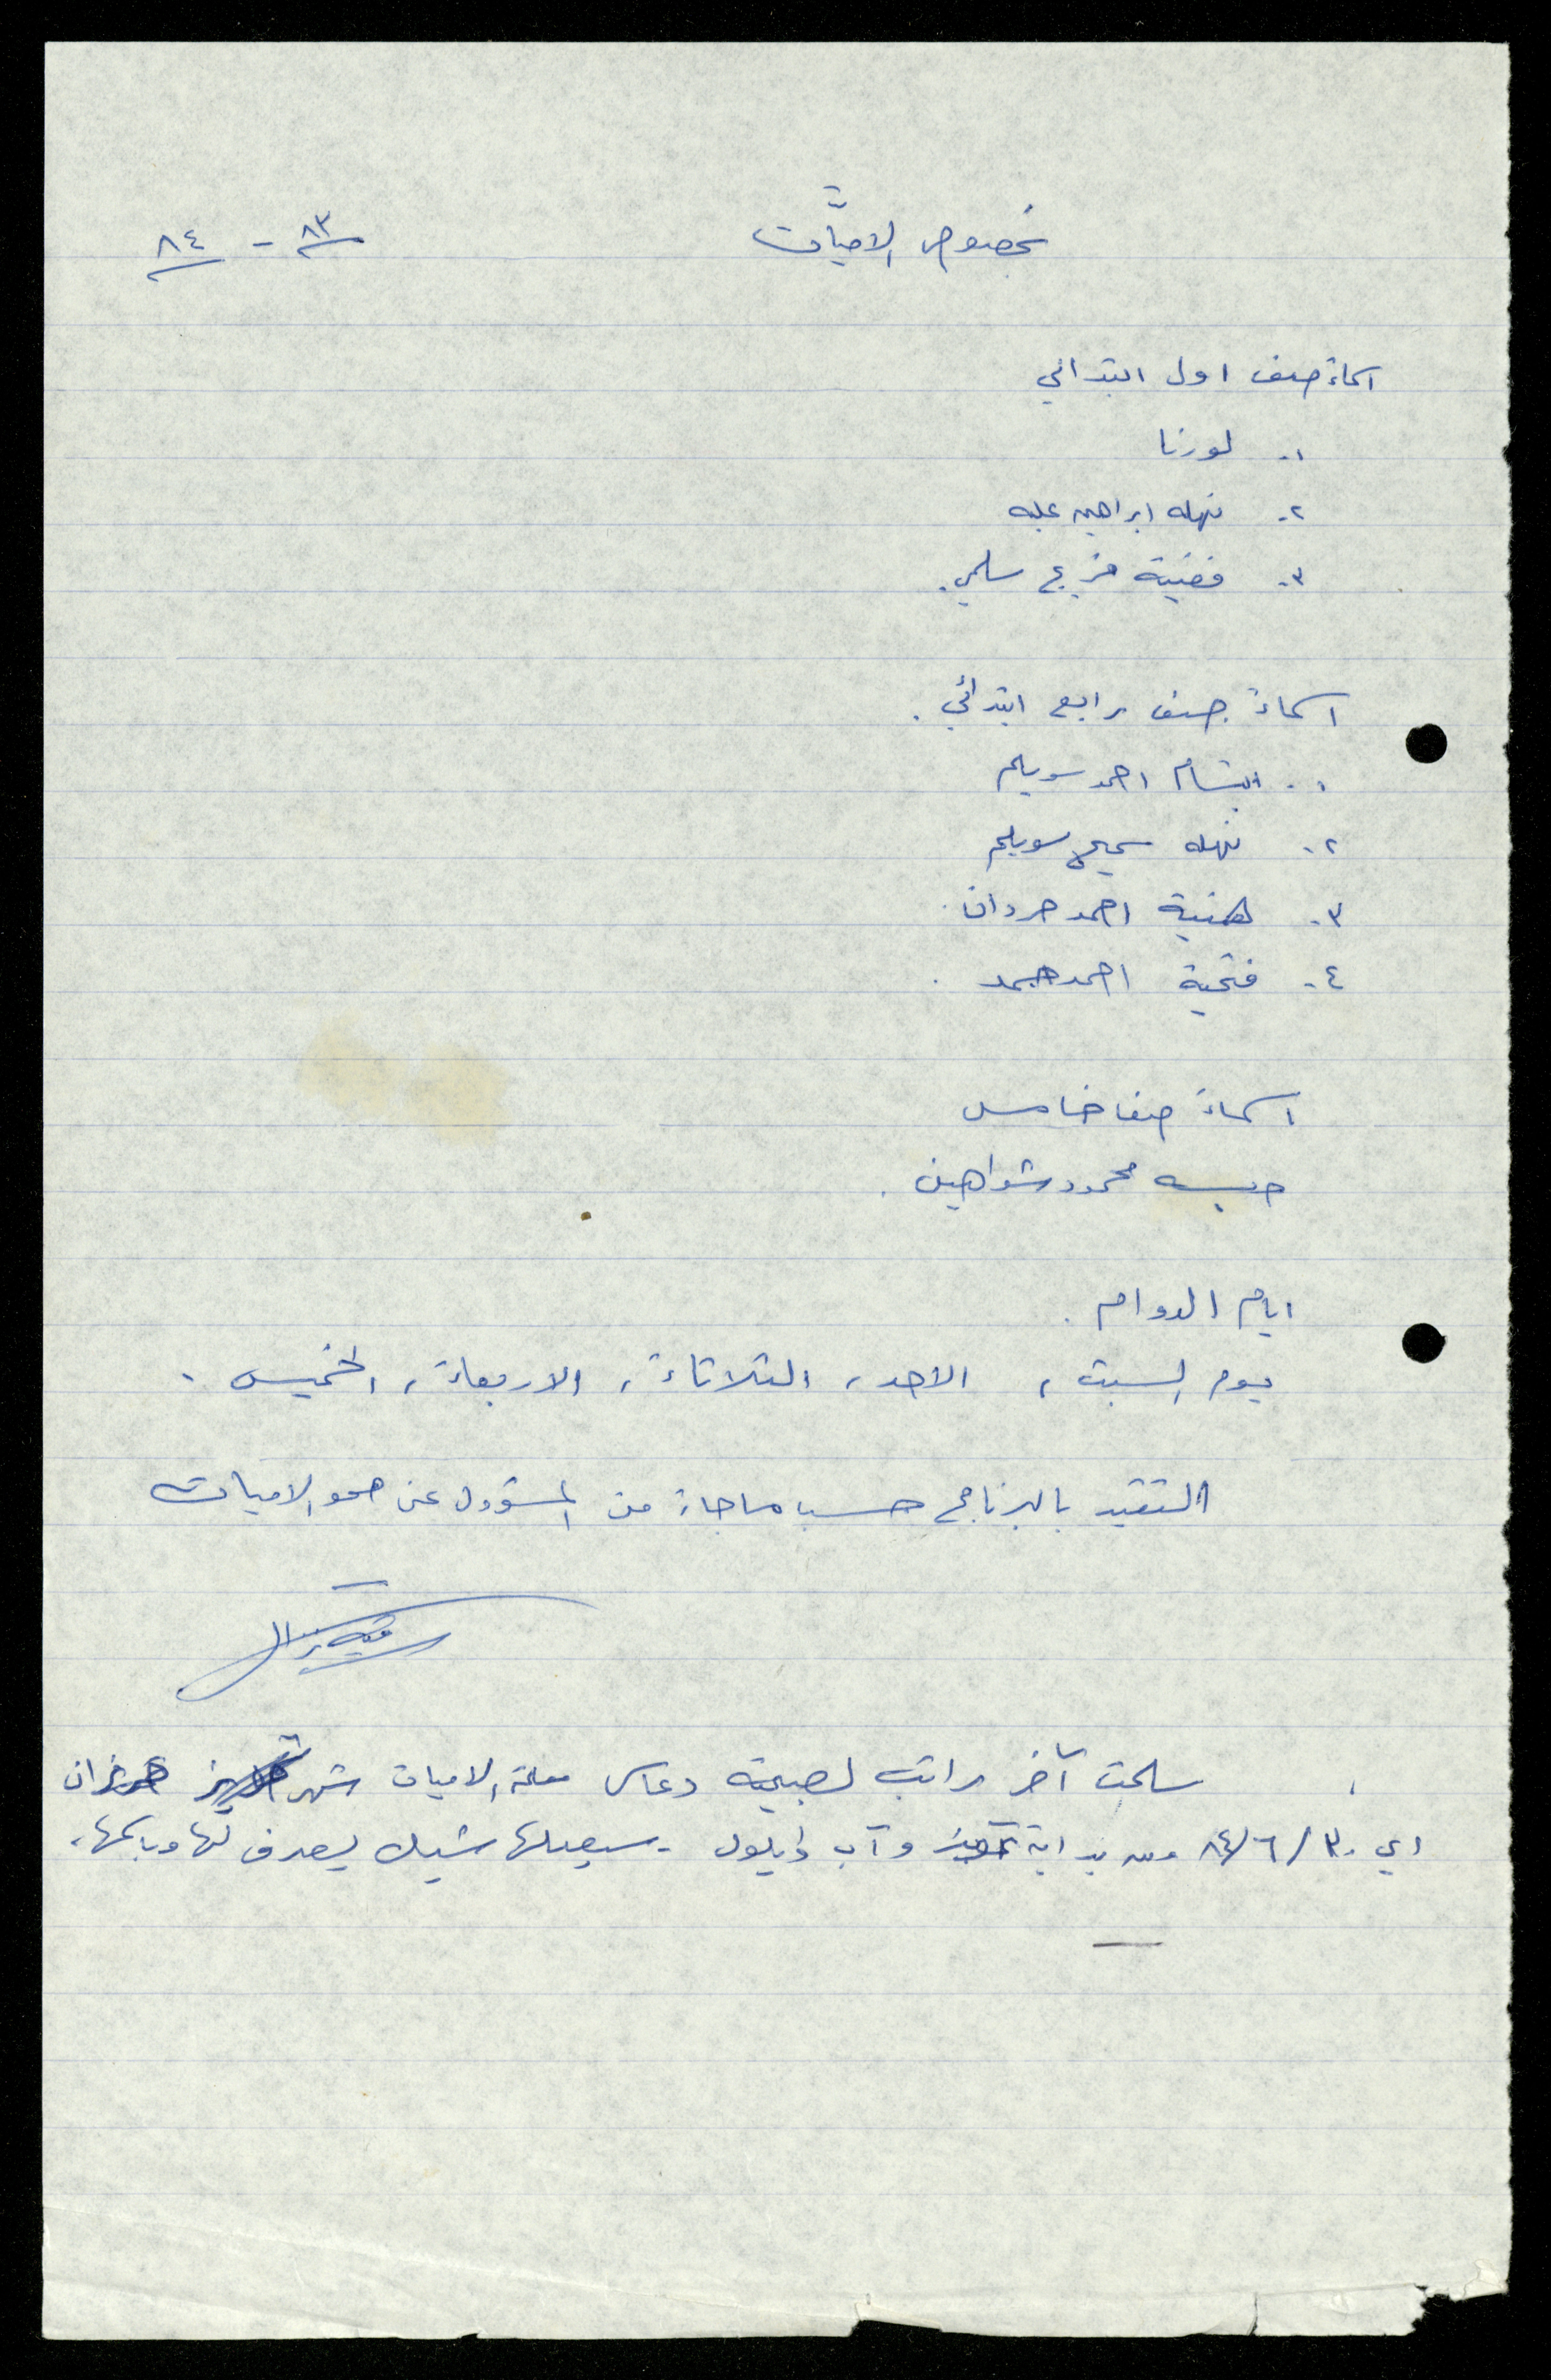 بخصوص الاميّات ٨٣ - ٨٤
اسماء صف اول ابتدائي
١- لورنا
٢- نهله ابراهيم عليه
٣- فضية فريج سلمي.
اسماء صف رابع ابتدائي.
١- ابتسام احمد سويلم
٢- نهله سميح سويلم
٣- هنية احمد حردان.
٤- فتحية احمد حمد.
اسماء صف خامس
حبسه محمود شواهين.
ايام الدوام.
يوم السبت، الاحد، الثلاثاء، الاربعاء، الخميس.
التقيد بالبرنامج حسب ما جاء من المسؤول عن محو الاميات
سلمت آخر راتب لصبيحة دعاس معلمة الاميات شهر حزيران
اي ٣٠/٦/٨٤ ومن بداية تموز وآب وايلول - سيصلها شيك يصرف لها وباسمها.